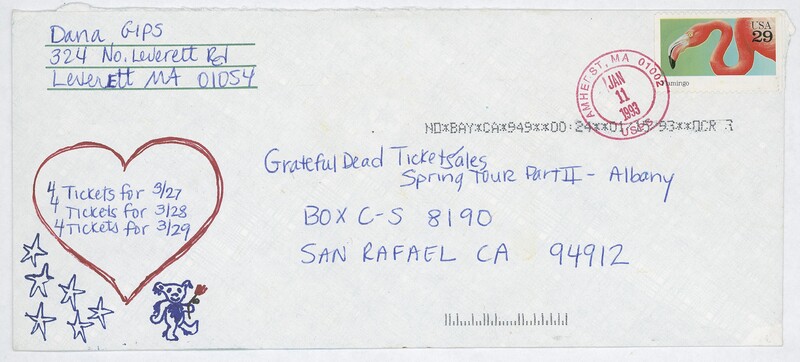 Dana Gips
324 No. Leverett Rd
Leverett MA 01054
USA
29
Flamingo
AMHERST, MA 01002
JAN
11
1993
USPS
NO*BAY*CA*949**00:24**01
93**OCR
Grateful Dead Ticket Sales
Spring Tour Part II - Albany
BOX C-S 8190
SAN RAFAEL CA 94912
4 Tickets for 3/27
4 Tickets for 3/28
4 Tickets for 3/29